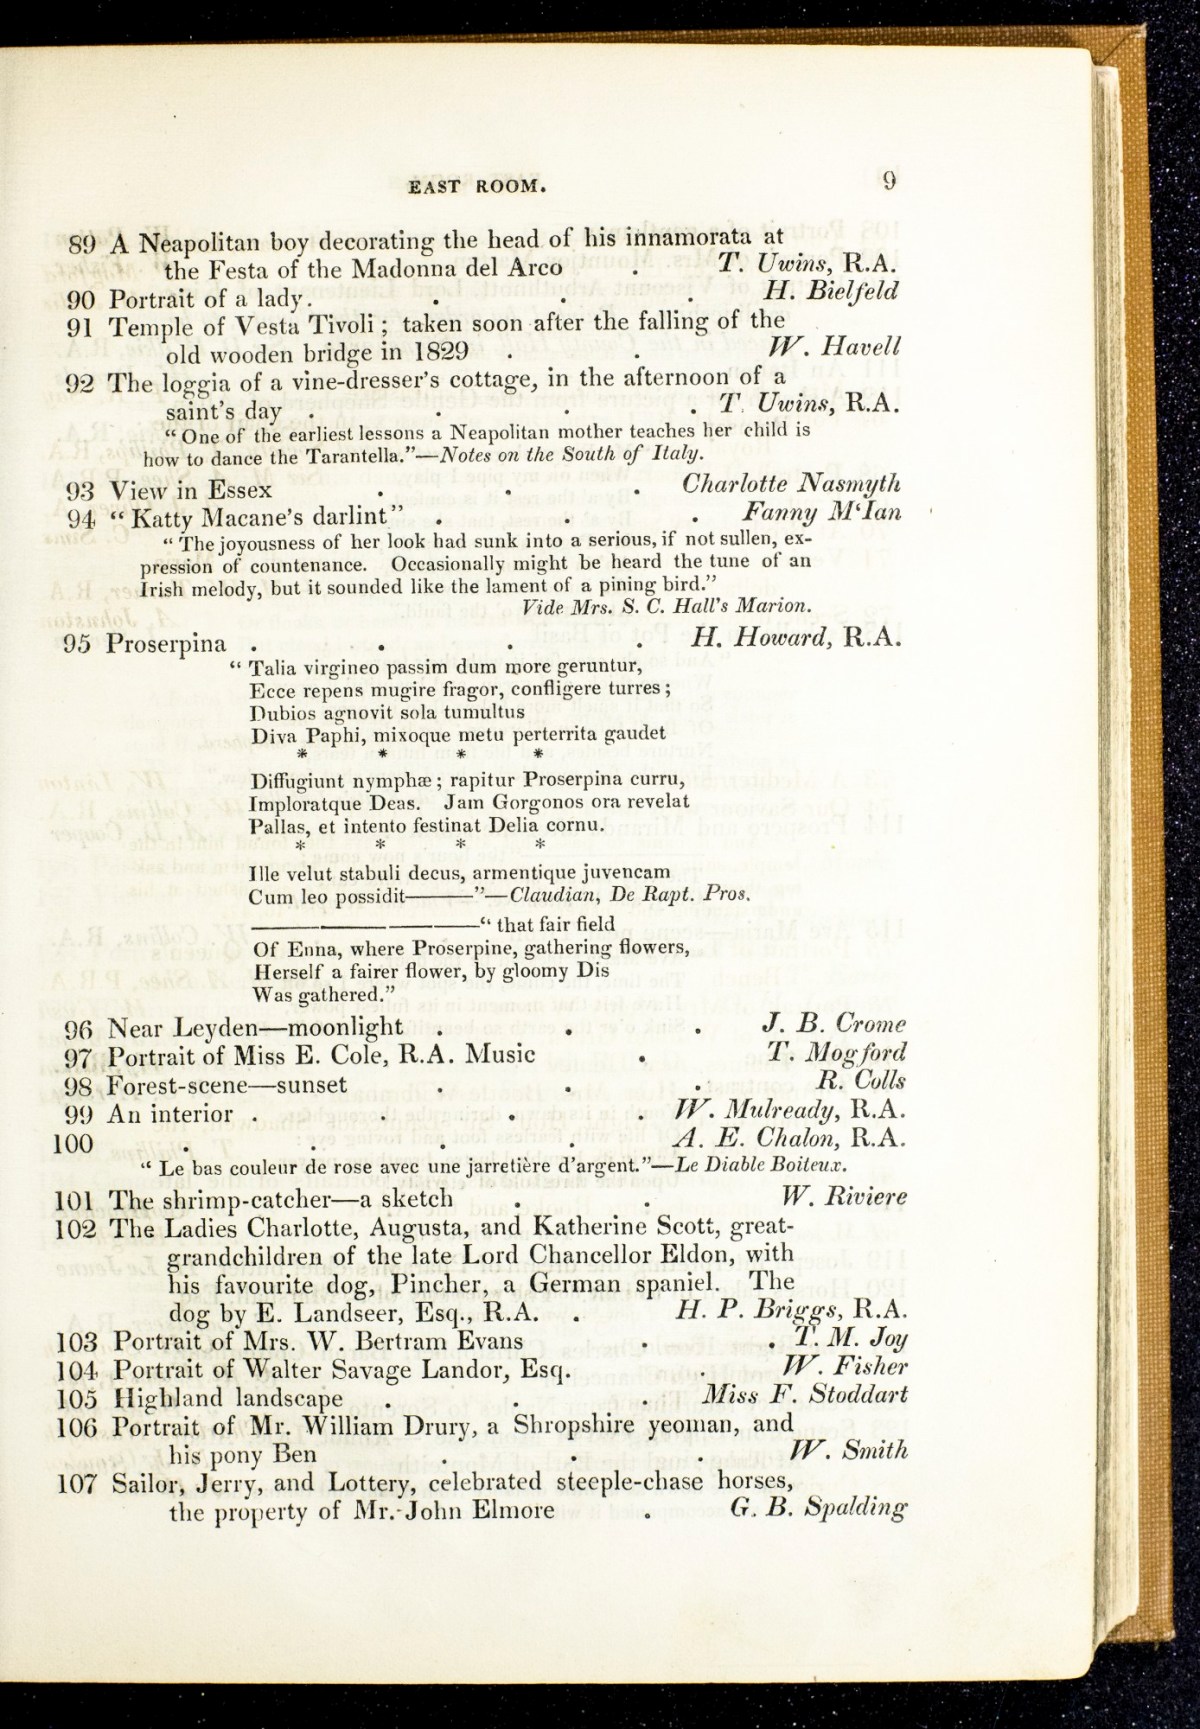 EAST ROOM. 9
89 A Neapolitan boy decorating the head of his innamorata at
the Festa of the Madonna del Arco . T. Uwins, R.A.
90 Portrait of a lady. . . . H. Bielfeld
91 Temple of Vesta Tivoli ; taken soon after the falling of the
old wooden bridge in 1829 . . W. Havell
92 The loggia of a vine-dresser's cottage, in the afternoon of a
saint's day . . . . T. Uwins, R.A.
“ One of the earliest lessons a Neapolitan mother teaches her child is
how to dance the Tarantella.”—Notes on the South of Italy.
93 View in Essex . . . Charlotte Nasmyth
94 “ Katty Macane's darlint” . . . Fanny M‘Ian
“ The joyousness of her look had sunk into a serious, if not sullen, ex-
pression of countenance. Occasionally might be heard the tune of an
Irish melody, but it sounded like the lament of a pining bird.”
Vide Mrs. S. C. Hall's Marion.
95 Proserpina . . . . H. Howard, R.A.
“ Talia virgineo passim dum more geruntur,
Ecce repens mugire fragor, confligere turres ;
Dubios agnovit sola tumultus
Diva Paphi, mixoque metu perterrita gaudet
* * * *
Diffugiunt nymphæ ; rapitur Proserpina curru,
Imploratque Deas. Jam Gorgonos ora revelat
Pallas, et intento festinat Delia cornu.
* * * *
Ille velut stabuli decus, armentique juvencam
Cum leo possidit———”—Claudian, De Rapt. Pros.
—————————“ that fair field
Of Enna, where Proserpine, gathering flowers,
Herself a fairer flower, by gloomy Dis
Was gathered.”
96 Near Leyden—moonlight . . . J. B. Crome
97 Portrait of Miss E. Cole, R.A. Music . T. Mogford
98 Forest-scene—sunset . . . R. Colls
99 An interior . . . . W. Mulready, R.A.
100 . . . . A. E. Chalon, R.A.
“ Le bas couleur de rose avec une jarretière d'argent.”—Le Diable Boiteux.
101 The shrimp-catcher—a sketch . . W. Riviere
102 The Ladies Charlotte, Augusta, and Katherine Scott, great-
grandchildren of the late Lord Chancellor Eldon, with
his favourite dog, Pincher, a German spaniel. The
dog by E. Landseer, Esq., R.A. . H. P. Briggs, R.A.
103 Portrait of Mrs. W. Bertram Evans . . T. M. Joy
104 Portrait of Walter Savage Landor, Esq. . W. Fisher
105 Highland landscape . . . Miss F. Stoddart
106 Portrait of Mr. William Drury, a Shropshire yeoman, and
his pony Ben . . . W. Smith
107 Sailor, Jerry, and Lottery, celebrated steeple-chase horses,
the property of Mr. John Elmore . G. B. Spalding